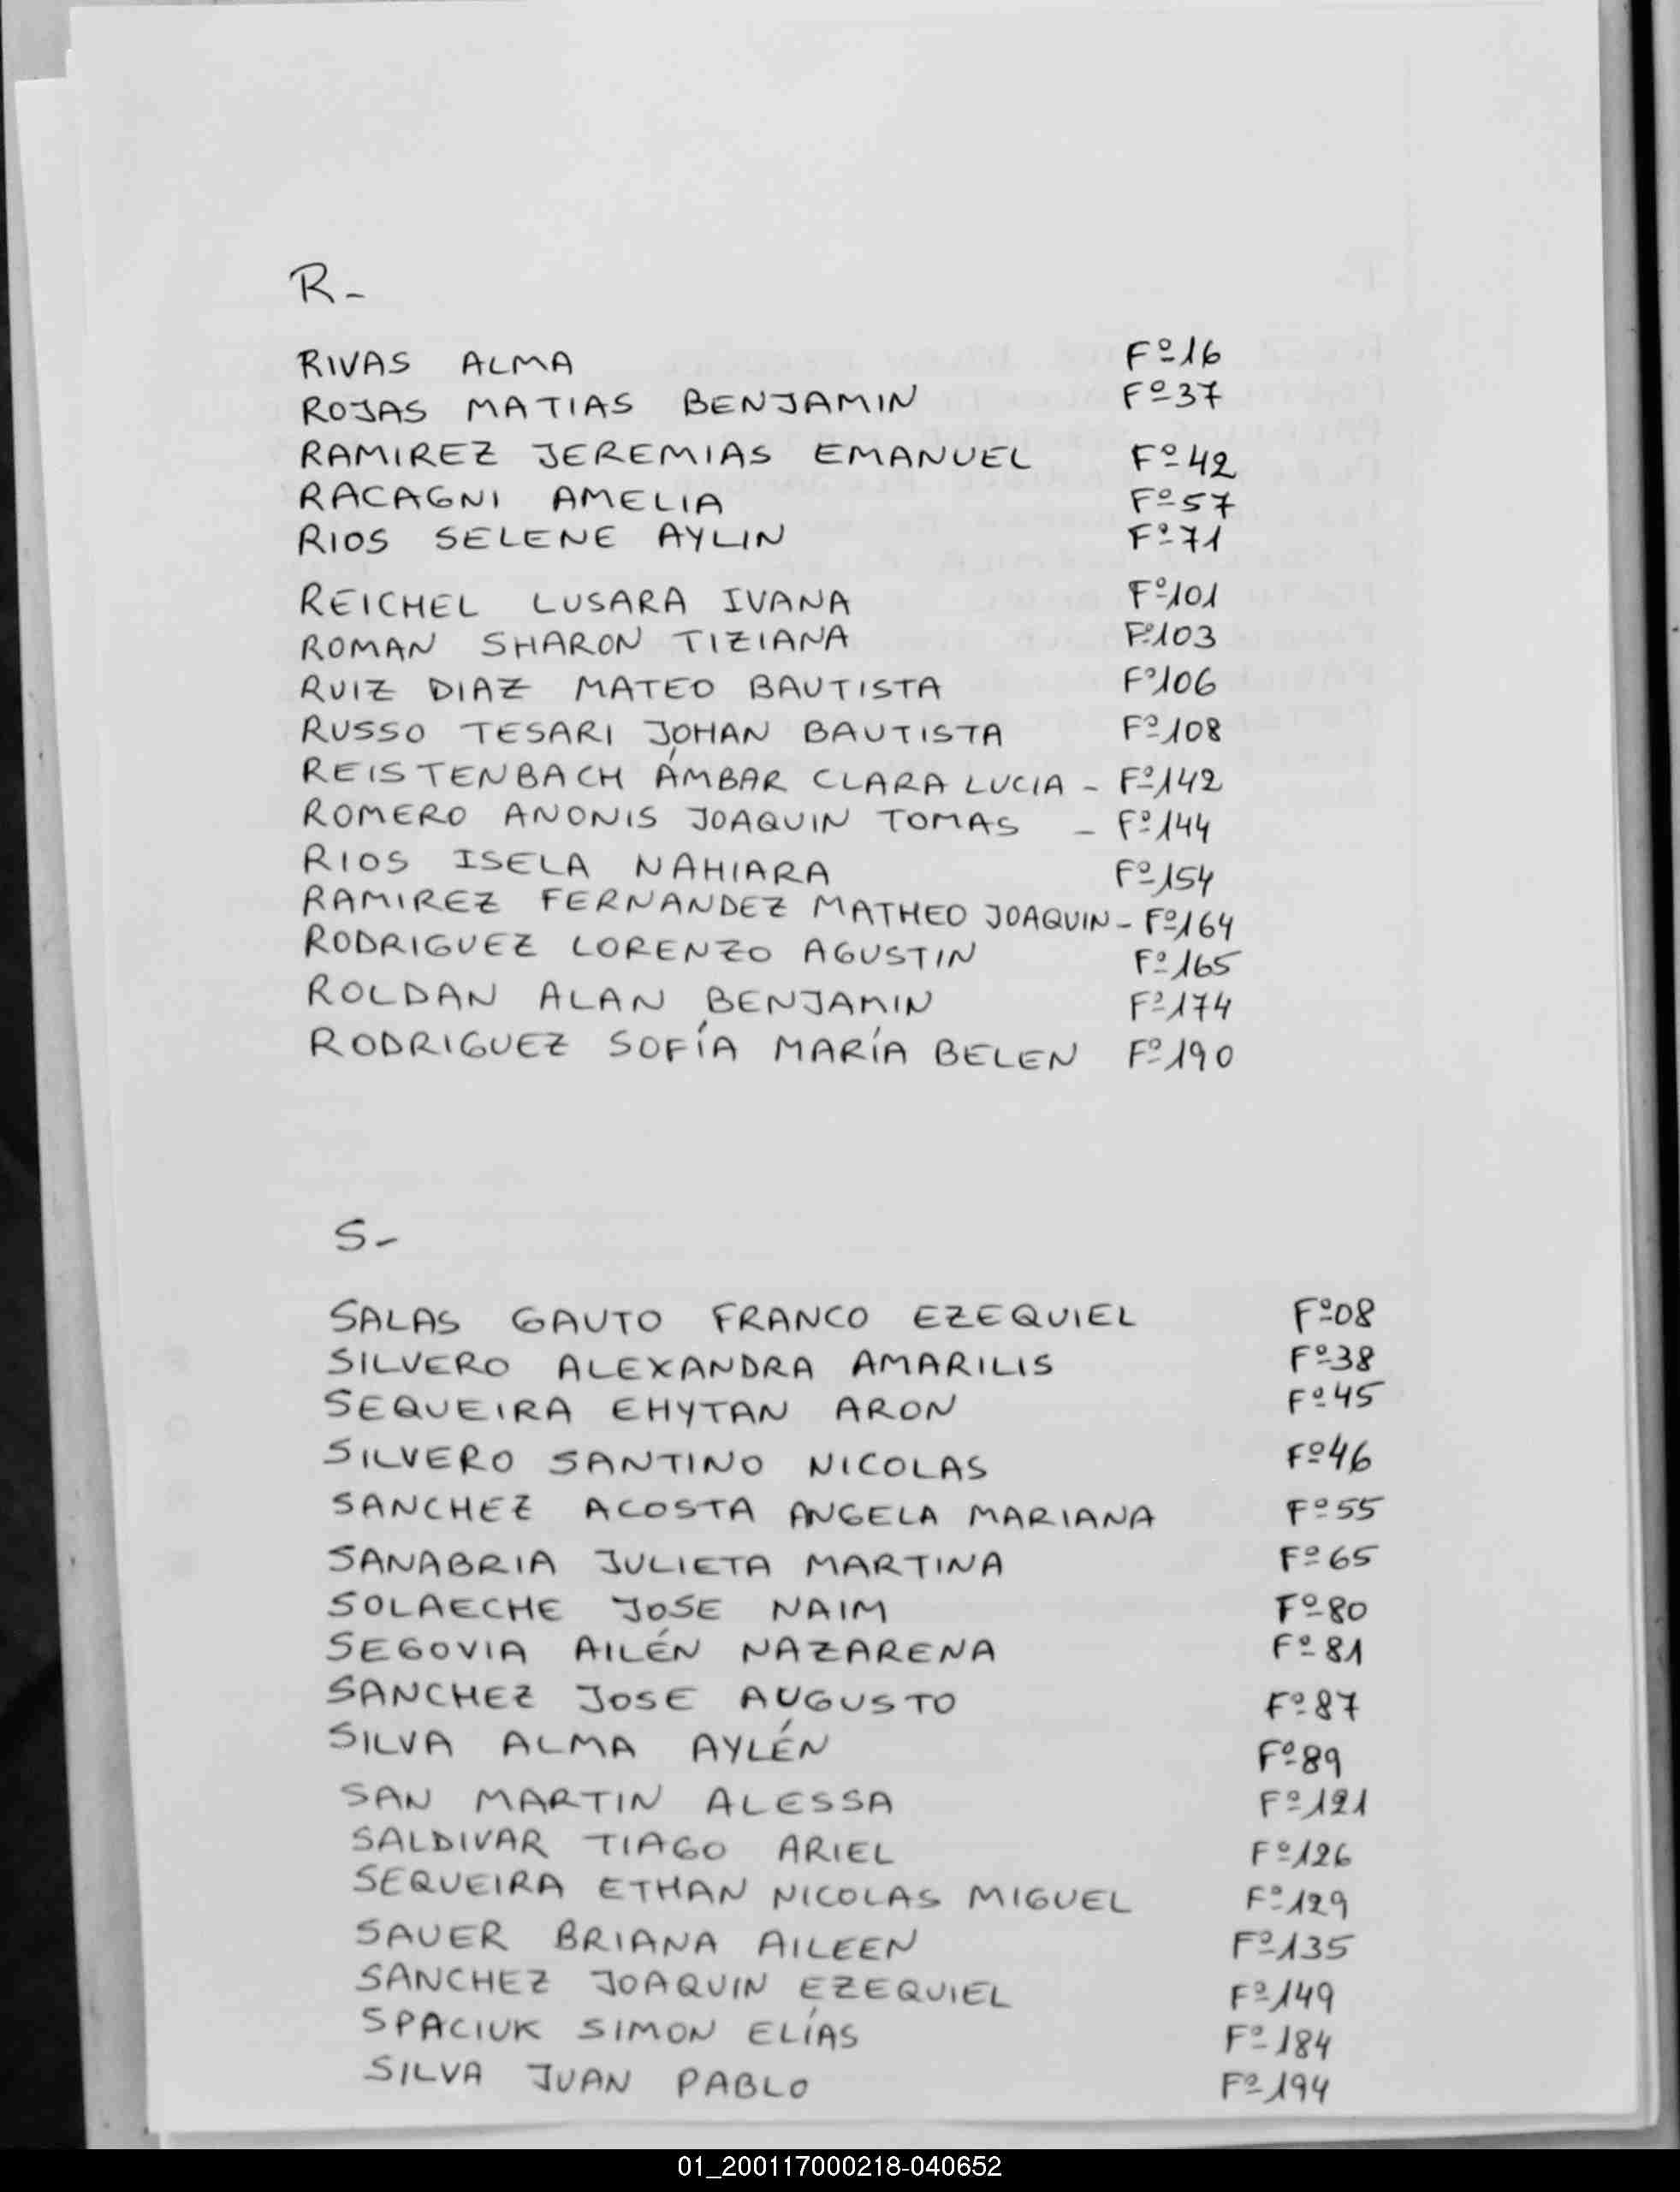 R-
RIVAS ALMA Fº16
ROJAS MATIAS BENJAMIN Fº37
RAMIREZ JEREMIAS EMANUEL Fº42
RACAGNI AMELIA Fº57
RIOS SELENE AYLIN Fº71
REICHEL LUSARA IVANA Fº101
ROMAN SHARON TIZIANA Fº103
RUIZ DIAZ MATEO BAUTISTA Fº106
RUSSO TESARI JOHAN BAUTISTA Fº108
REISTENBACH ÁMBAR CLARA LUCIA - Fº142
ROMERO ANONIS JOAQUIN TOMAS - Fº144
RIOS ISELA NAHIARA Fº154
RAMIREZ FERNANDEZ MATHEO JOAQUIN - Fº164
RODRIGUEZ LORENZO AGUSTIN Fº165
ROLDAN ALAN BENJAMIN Fº174
RODRIGUEZ SOFÍA MARÍA BELEN Fº190
S-
SALAS GAUTO FRANCO EZEQUIEL Fº08
SILVERO ALEXANDRA AMARILIS Fº38
SEQUEIRA EHYTAN ARON Fº45
SILVERO SANTINO NICOLAS Fº46
SANCHEZ ACOSTA ANGELA MARIANA Fº55
SANABRIA JULIETA MARTINA Fº65
SOLAECHE JOSE NAIM Fº80
SEGOVIA AILÉN NAZARENA Fº81
SANCHEZ JOSE AUGUSTO Fº87
SILVA ALMA AYLÉN Fº89
SAN MARTIN ALESSA Fº121
SALDIVAR TIAGO ARIEL Fº126
SEQUEIRA ETHAN NICOLAS MIGUEL Fº129
SAUER BRIANA AILEEN Fº135
SANCHEZ JOAQUIN EZEQUIEL Fº149
SPACIUK SIMON ELÍAS Fº184
SILVA JUAN PABLO Fº194
01_200117000218-040652